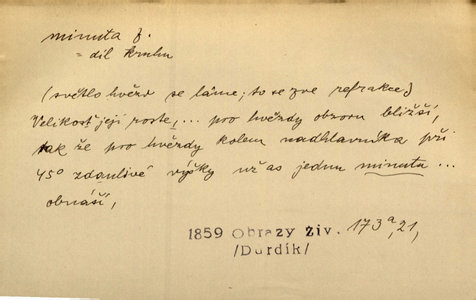 minuta f.
= díl kruhu
(světlo hvězd se láme; to se zve refrakce)
Velikost její roste, ... pro hvězdy obzoru bližší,
tak že pro hvězdy kolem nadhlavníka při
45° zdánlivé výšky už as jednu minutu ...
obnáší,
1859 Obrazy živ. 173a,21,
/Durdík/